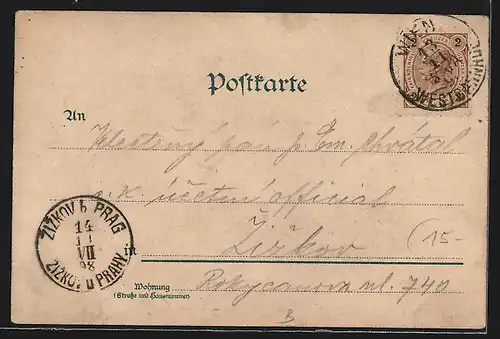 WIEN
WESTBAHNHOF
2
Postkarte
An
Velectěný pan p. Em. Chvátal
c. k. účetní official
ŽIŽKOV b PRAG
14
VII
98
ŽIŽKOV u PRAHY
in Žižkov
15-
Wohnung
(Straße und Hausnummer)
Rokycanova ul. 740
B